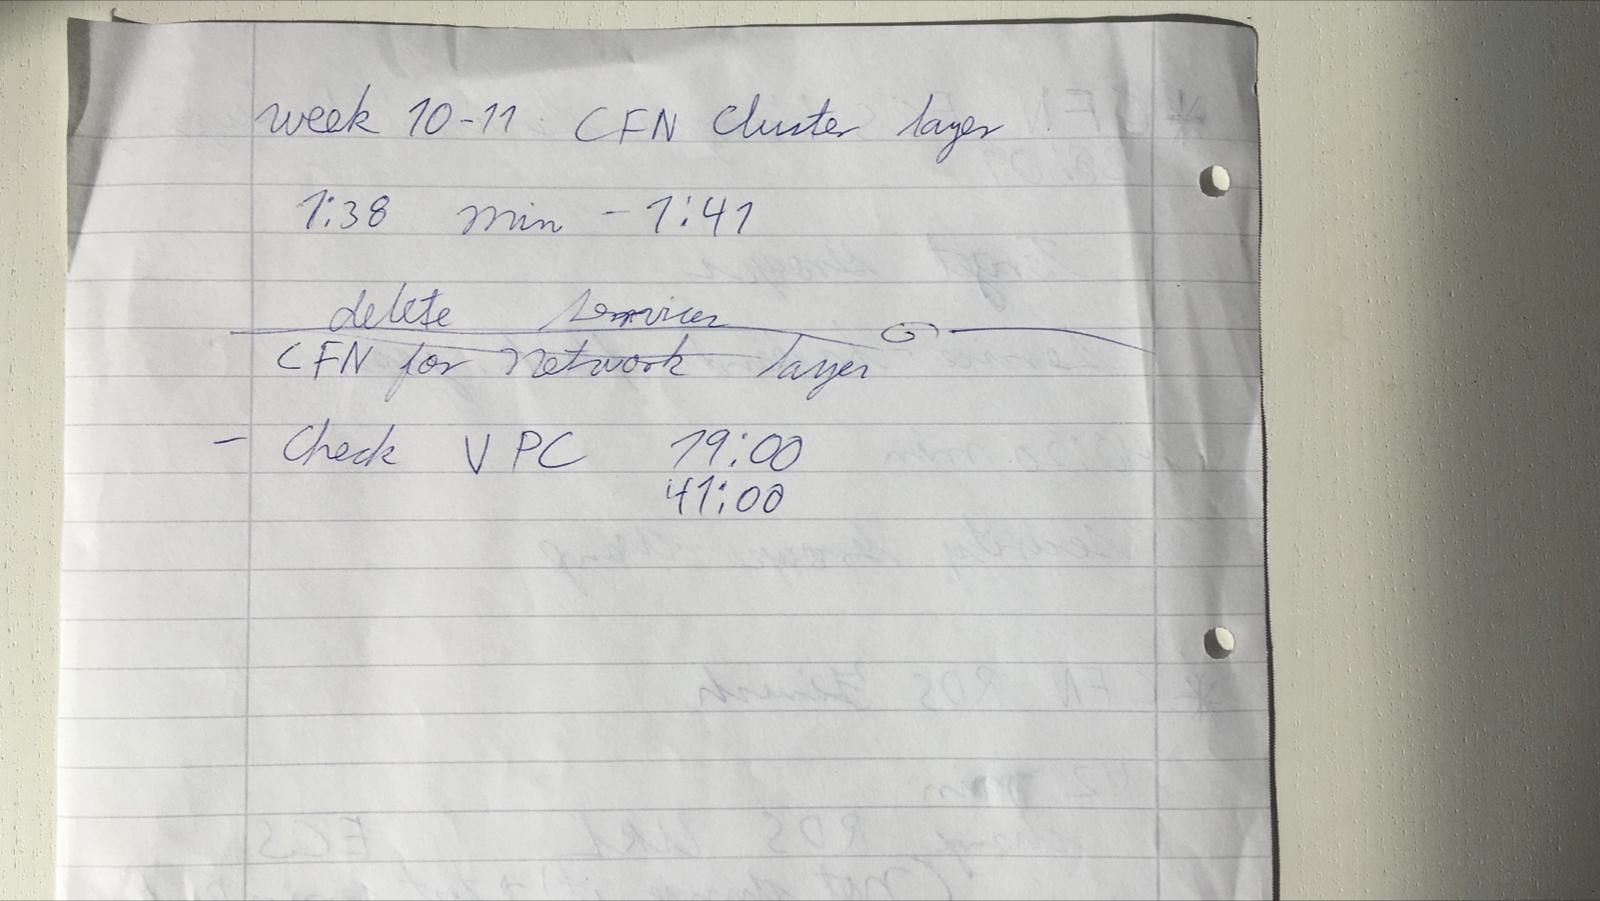 week 10-11 CFN Cluster layer
1:38 min - 1:41
delete Services
CFN for Network layer
- Check VPC 19:00
41:00